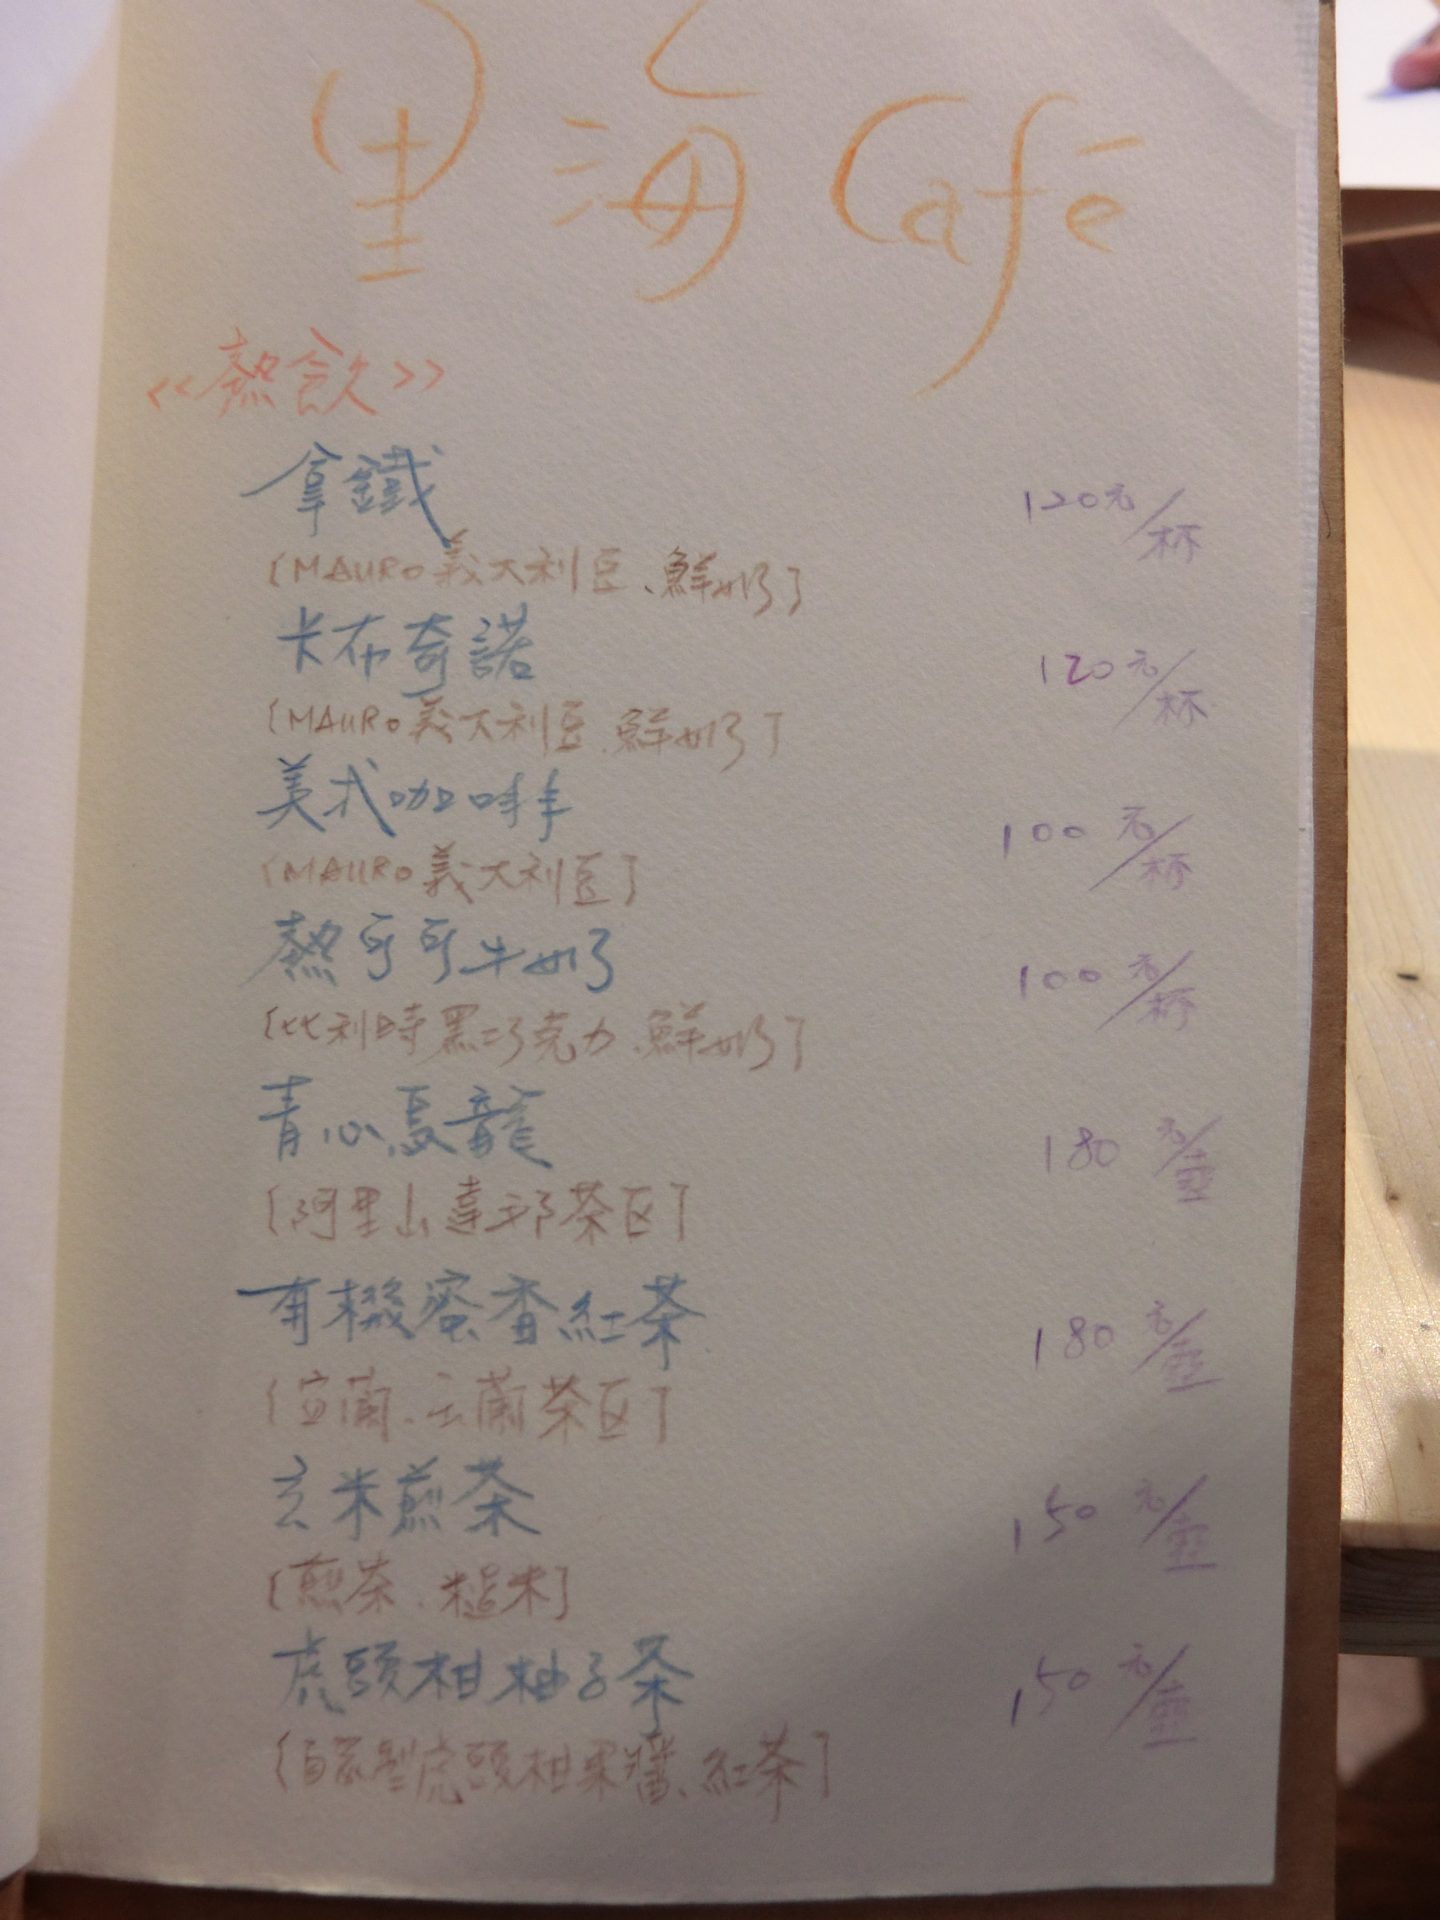 里海Café
<<熱飲>>
拿鐵 120元/杯
[MAURO義大利豆、鮮奶]
卡布奇諾 120元/杯
[MAURO義大利豆、鮮奶]
美式咖啡 100元/杯
[MAURO義大利豆]
熱可可牛奶 100元/杯
[比利時黑巧克力、鮮奶]
青心烏龍 180元/壺
[阿里山達邦茶区]
有機蜜香紅茶 180元/壺
[宜蘭、玉蘭茶区]
玄米煎茶 150元/壺
[煎茶、糙米]
虎頭柑柚子茶 150元/壺
[自家製虎頭柑果醬、紅茶]